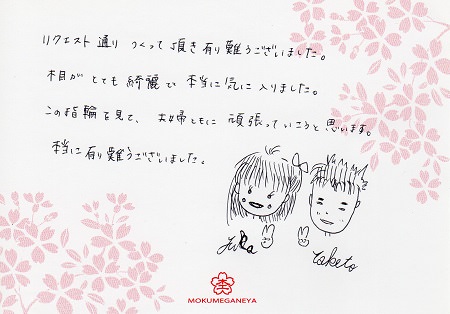 リクエスト通り つくって頂き有り難うございました。
木目が とても 綺麗で 本当に 気に 入りました。
この指輪を見て、 夫婦ともに 頑張っていこうと思います。
本当に有り難うございました。
Taketo
MOKUMEGANEYA